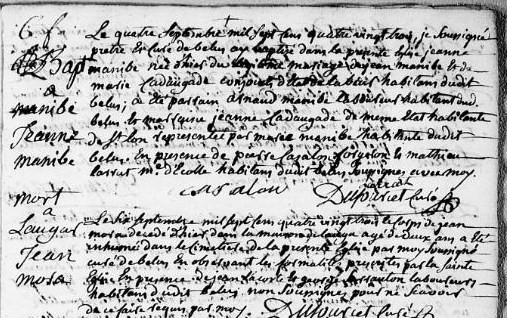 6 f.
Bapt
a
manibe
Jeanne
manibe
Le quatre Septembre mil sept cens quatre vingt trois, je Soussigné
pretre et curé de belus ay baptisé dans la presente Eglise jeanne
manibe née d'hier du mariage de jean manibe et de
marie Ladaugade conjoints habitans dudit
belus, a été parrain arnaud manibe laboureur habitant dud.
belus et marraine jeanne Ladaugade de meme etat habitante
de St Lon representée par marie manibe habitante dudit
belus. En presence de pierre Casalon et mathieu
Larrat habitans dudit belus Soussignés avec moy.
Casalon Larrat
Dufourcet Curé
mort
a
Laugar
Jean
mora
Le Six Septembre mil sept cens quatre vingt trois le corps de jean
mora decedé d'hier dans la maison de agé de deux ans a été
inhumé dans le cimetiere de la presente Eglise par moy Soussigné
curé de belus en observant les formalités prescrites par la Sainte
Eglise En presence de jean et laboureurs
habitans dudit belus non Soussignés pour ne Scavoir
de ce faire requis par moy.
Dufourcet Curé